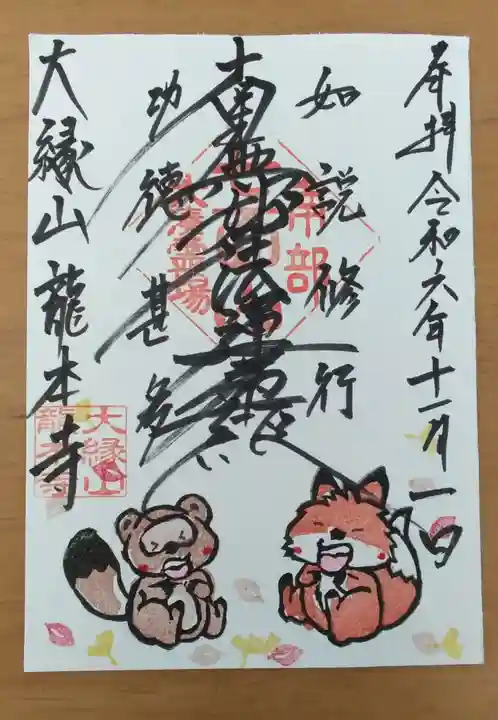 奉拝 令和六年十一月一日
如説修行
南無妙法蓮華経
功徳甚多
大縁山龍本寺
大縁山
龍本寺